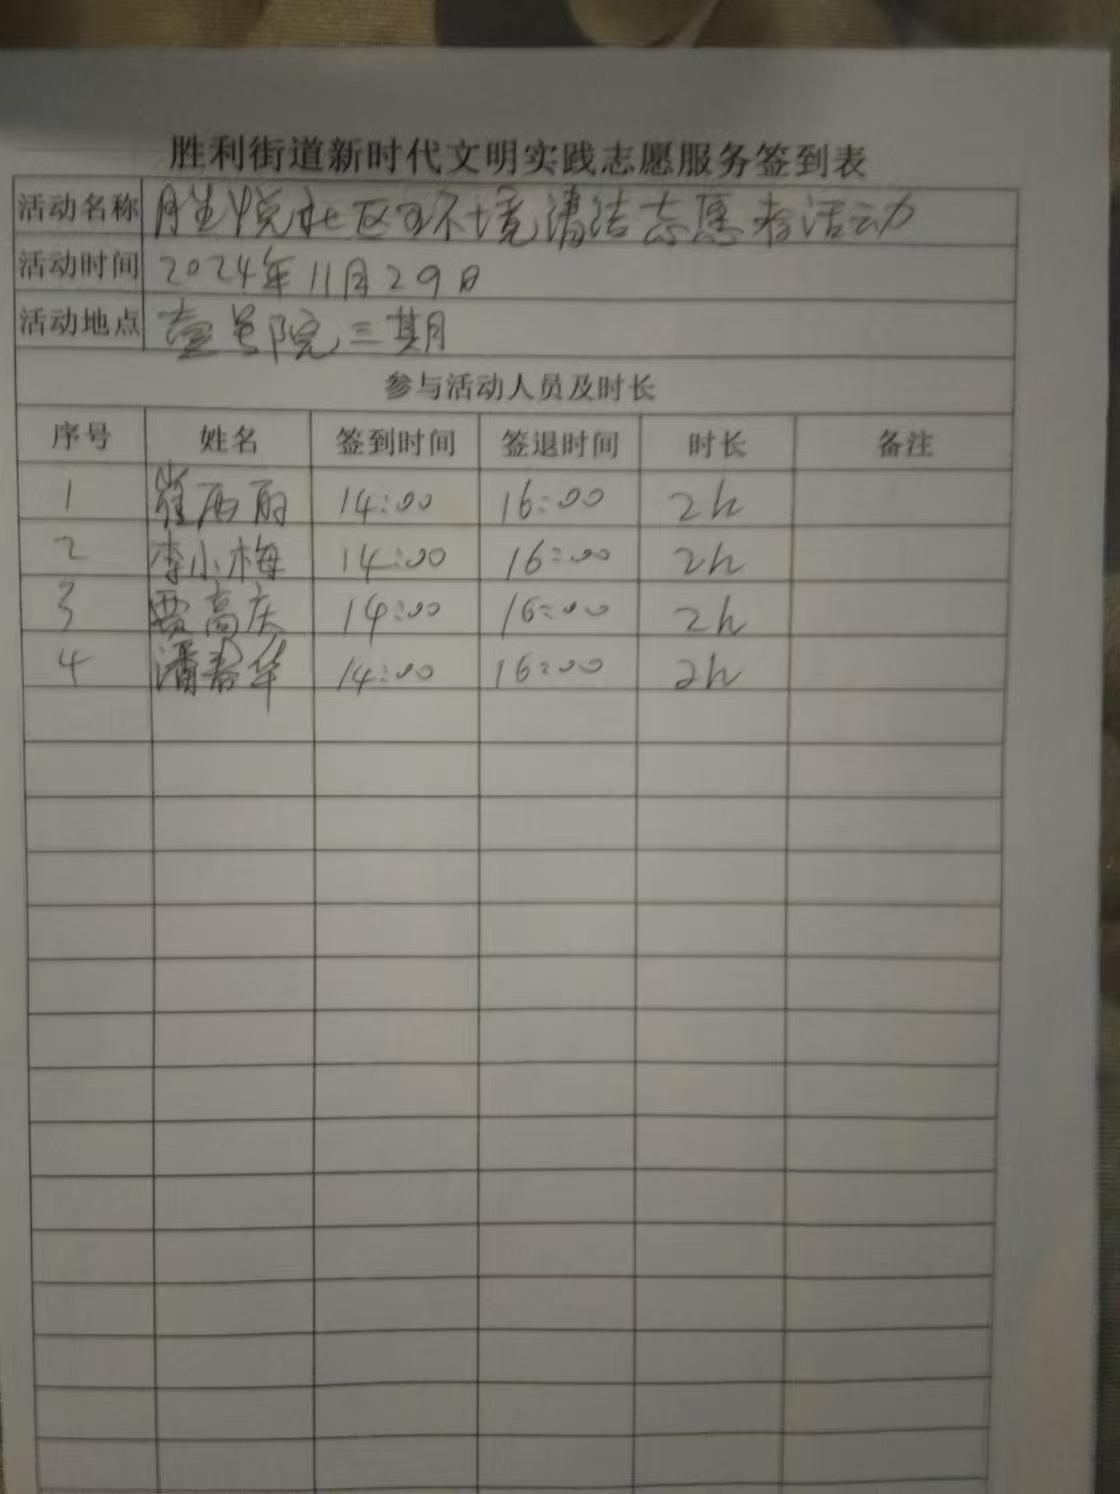 胜利街道新时代文明实践志愿服务签到表
活动名称 胜悦社区环境清洁志愿者活动
活动时间 2024年11月29日
活动地点 壹号院三期
参与活动人员及时长
序号 姓名 签到时间 签退时间 时长 备注
1 崔丙丽 14:00 16:00 2h
2 李小梅 14:00 16:00 2h
3 贾高庆 14:00 16:00 2h
4 潘春华 14:00 16:00 2h